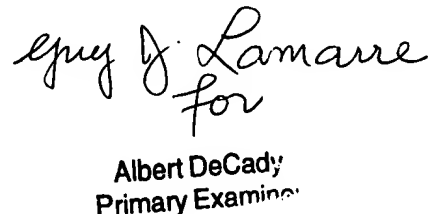 Guy J. Lamarre
for
Albert DeCady
Primary Examiner